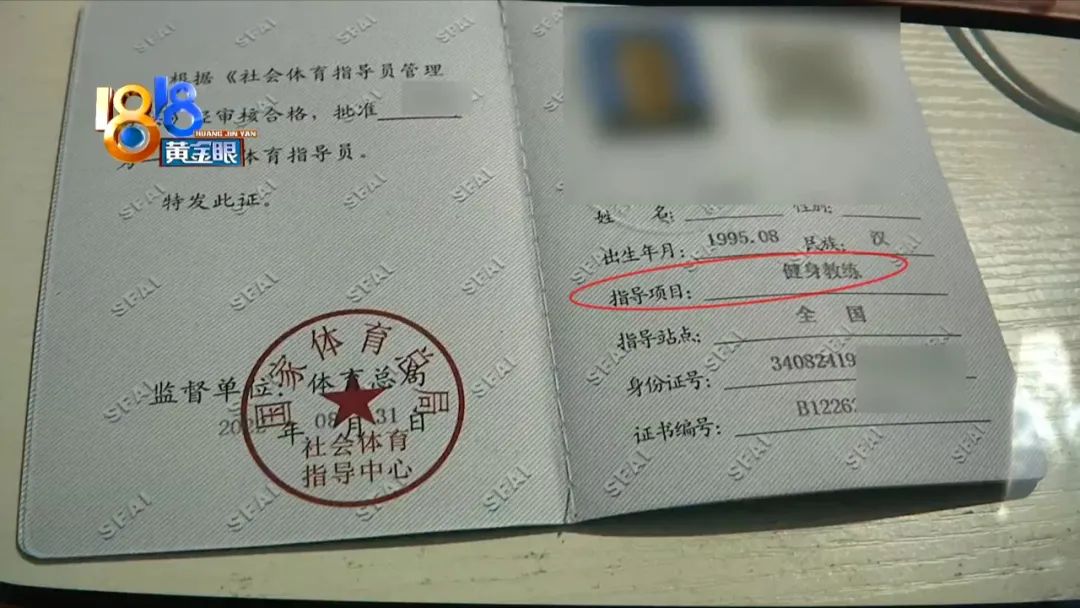 根据《社会体育指导员管理
审核合格，批准
体育指导员。
特发此证。
监督单位：体育总局
年08月31日
国家体育总局
社会体育
指导中心
1818
HUANG JIN YAN
黄金眼
姓 名：
性别：
出生年月：1995.08 民族：汉
指导项目：健身教练
指导站点：全 国
身份证号：34082419
证书编号：B12263
SFAI